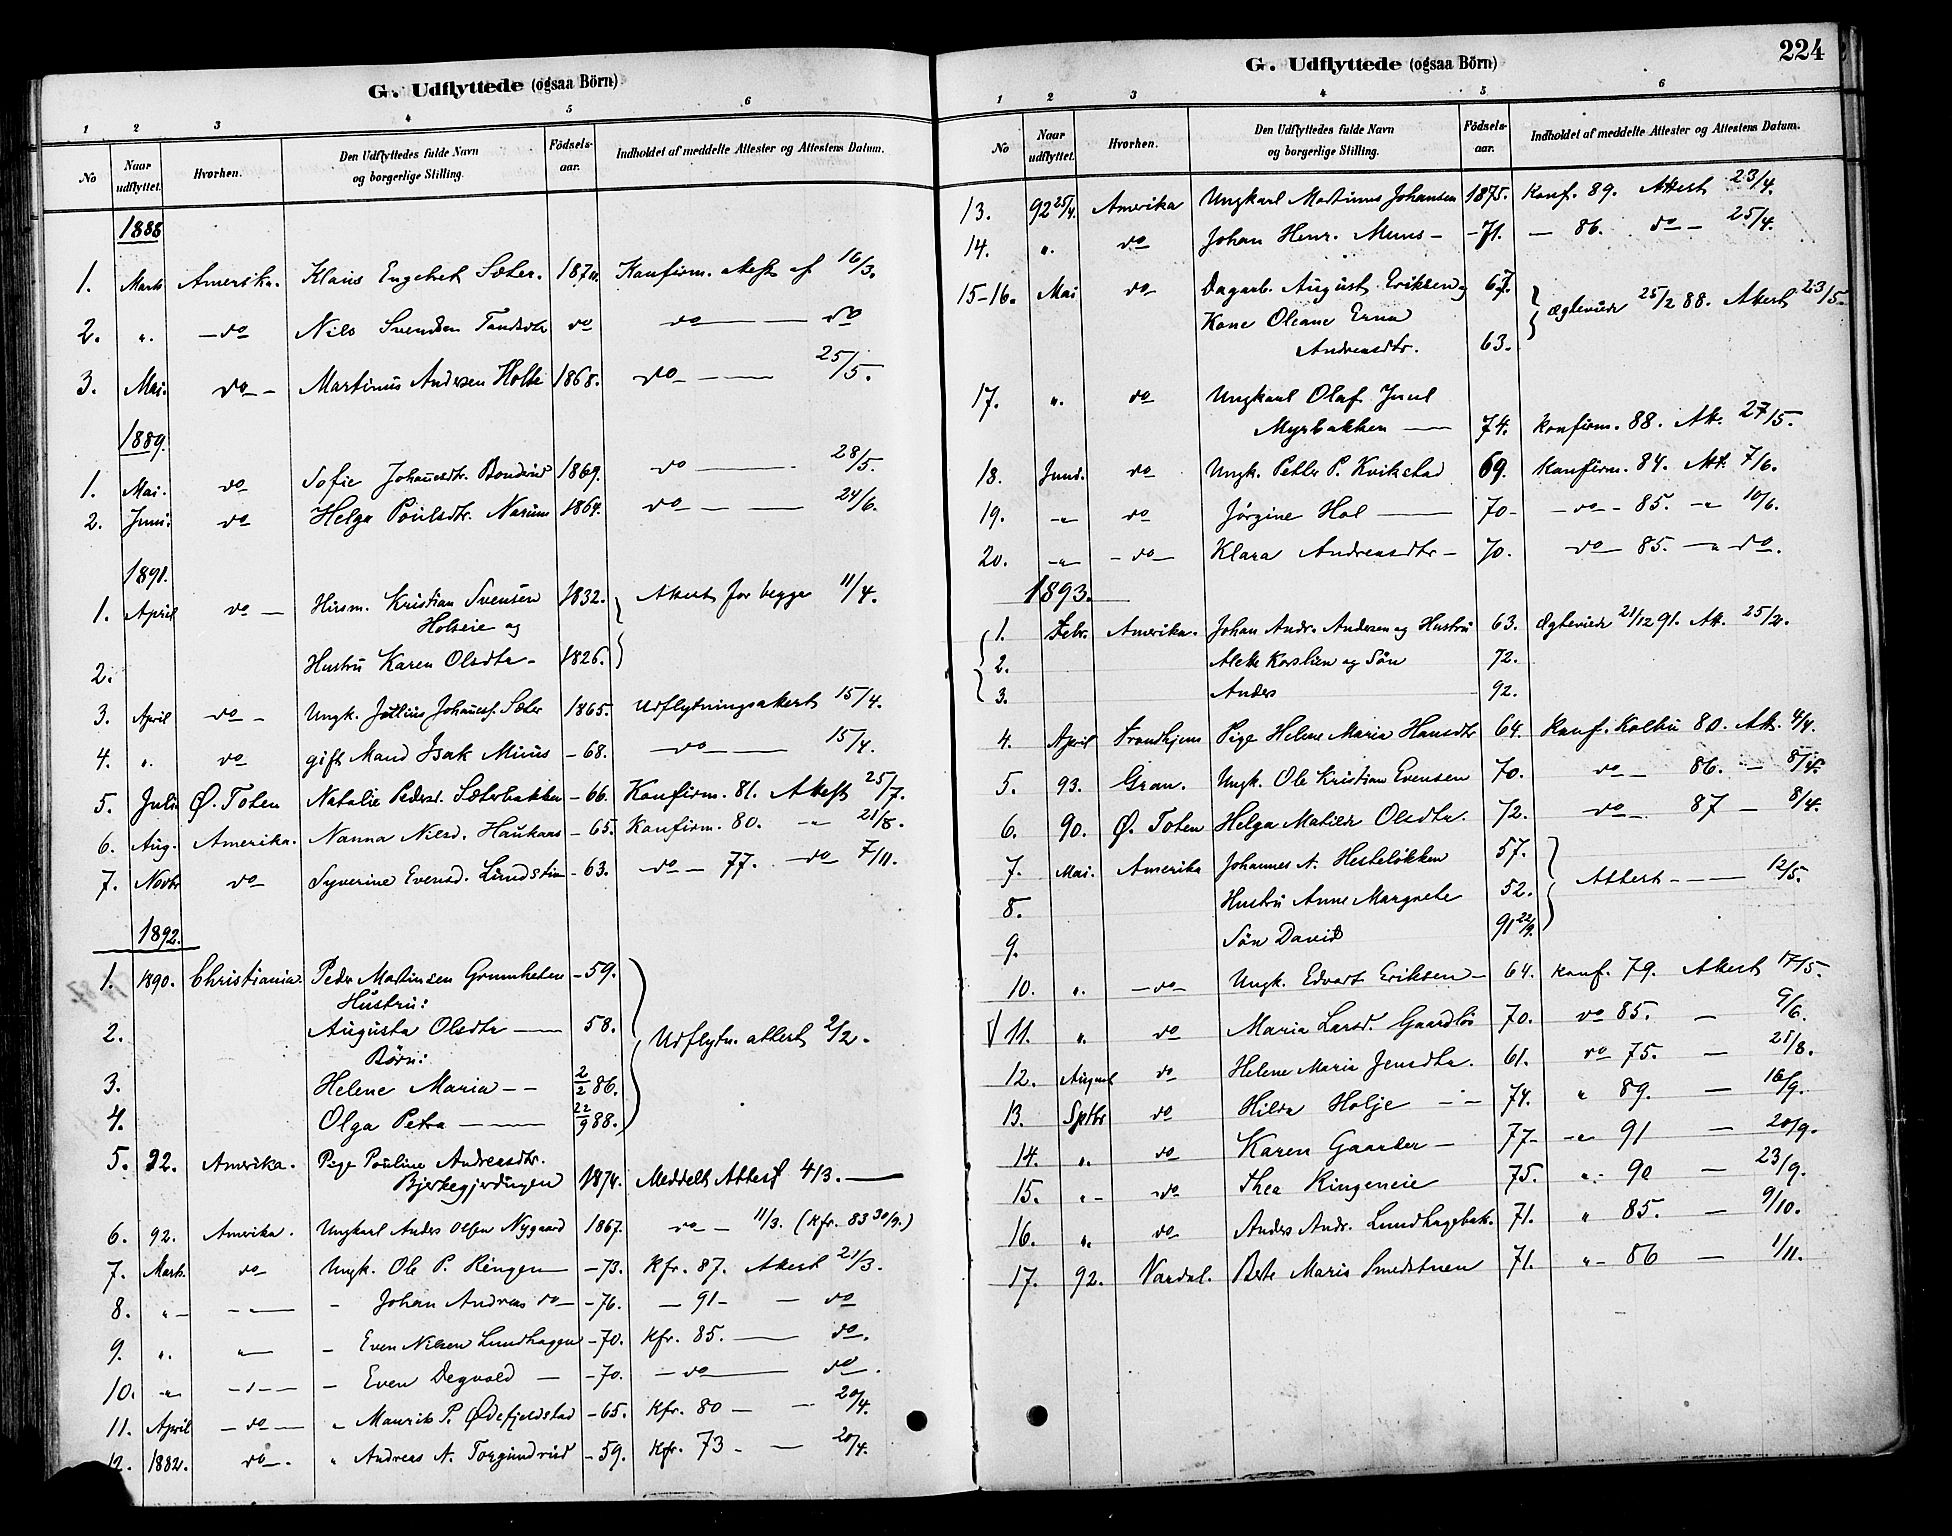 G. Udflyttede (ogsaa Börn)
1 2 3 4 5 6
No Naar udflyttet. Hvorhen. Den Udflyttedes fulde Navn og borgerlige Stilling. Födsels-aar. Indholdet af meddelte Attester og Attestens Datum.
1888
1. Marts Amerika. Klaus Engebret Sæter. Konfirm. attest af 16/3.
2. „ do Nils Svendsen do do do
3. Mai. do Martinus Andersen Holte 1868. do 25/5.
1889.
1. Mai. do Sofie Johannesdtr. Bondrud 1869. do 28/5.
2. Juni. do Helga Poulsdtr. Narum 1864. do 24/6.
1891.
1. April do Husm. Kristian Svensen 1832. Attest for begge 11/4.
Holseie og
2. Hustru Karen Olsdtr. 1826.
3. April do Ungk. Julius Johannesf. Sæter 1865. Udflytningsattest 15/4.
4. „ do gift Mand Isak Muus - 68. do 15/4.
5. Juli Ø. Toten Natalie Pedersd. Sæterbakken - 66. Konfirm. 81. Attest 25/7.
6. Aug. Amerika. Nanna Nilsd. Haukaas - 65. Konfirm. 80. „ 21/8.
7. Novbr do Syverine Evensd. Lundstein - 63. do 77. do 7/11.
1892.
1. 1890. Christiania. Peder Martinsen Grumheten - 59.
Hustru:
2. Augusta Olsdtr 58. Udflytn. attest 2/2.
Børn:
3. Helene Maria 2/2 86.
4. Olga Petra 22/9 88.
5. 92. Amerika. Pige Pauline Andreasdtr.
Bjerkegjerdingen 1874. Meddelt Attest 4/3.
6. 92. Amerika. Ungkarl Anders Olsen Nygaard 1867. do 11/3. (Kfr. 83 30/9.)
7. Marts do Ungk. Ole P. Ringen - 73. Kfr. 87. Attest 21/3.
8. „ „ - Johan Andreas do - 76. - 91 - - do
9. „ „ - Even Nilsen Lundhagen - 70. Kfr. 85. - do.
10. „ „ - Even Degvold - 70. do do.
11. April do „ Maurits P. Ødefjeldstad - 65. Kfr. 80 - - 20/4.
12. 1882. do. „ Andreas A. Torgundrud - 59. Kfr. 73 - - 20/4.
G. Udflyttede (ogsaa Börn) 224
1 2 3 4 5 6
No Naar udflyttet. Hvorhen. Den Udflyttedes fulde Navn og borgerlige Stilling. Födsels-aar. Indholdet af meddelte Attester og Attestens Datum.
13. 92 25/4. Amerika Ungkarl Martinus Johansen 1875. Konf. 89. Attest 23/4.
14. „ do Johan Henr. Muus - - 71. - 86. do - 25/4.
15-16. Mai do Dagarb. August Eriksen og 67.
Kone Oleane Erna Ægteviede 25/2 88. Attest 23/5.
Andreasdtr. 63.
17. „ do Ungkarl Olaf Juul
Myrbakken 74. Konfirm. 88. Att. 27/5.
18. Juni. do Ungk. Petter P. Kvikstad 69. Konfirm. 84. Att. 7/6.
19. „ do Jørgine Hol 70 - - do - 85. „ 10/6.
20. „ do Klara Andreasdtr - 70. do - 85. „ do.
1893.
1. Febr. Amerika. Johan Andr. Andersen og Hustru 63. Ægteviede 21/12 91. Att. 25/2.
2. Alette Korslien og Søn 72.
3. Anders 92.
4. April Trondhjem Pige Helene Maria Hansdtr 64. Konf. Kolbu 80. Att. 4/4.
5. 93. Gran. Ungk. Ole Kristian Evensen 70. do 86. - 8/4.
6. 90. Ø. Toten Helga Matilde Olsdtr. 72. do 87 - 8/4.
7. Mai. Amerika Johannes A. Hesteløkken 57.
8. Hustru Anne Margrete 52. Attest 12/5.
9. Søn David 91 22/9.
10. „ do Ungk. Edvart Eriksen - 64. Konf. 79. Attest 17/5.
11. „ do Maria Larsd. Gaardløs 70. do 85. - 9/6.
12. August do Helene Maria Jensdtr. 61. do 75. - 21/8.
13. Septbr do Hilda Holje - 74. „ 89. - 16/9.
14. „ do Karen Gaarder - 77 - „ 91 - 20/9.
15. „ do Thea Ringeneie 75. „ 90 - 23/9.
16. „ do Anders Andr. Lundhagebak. 71. „ 85. - 9/10.
17. 92. Vardal. Berte Marie Smedstuen 71. „ 86 - 1/11.